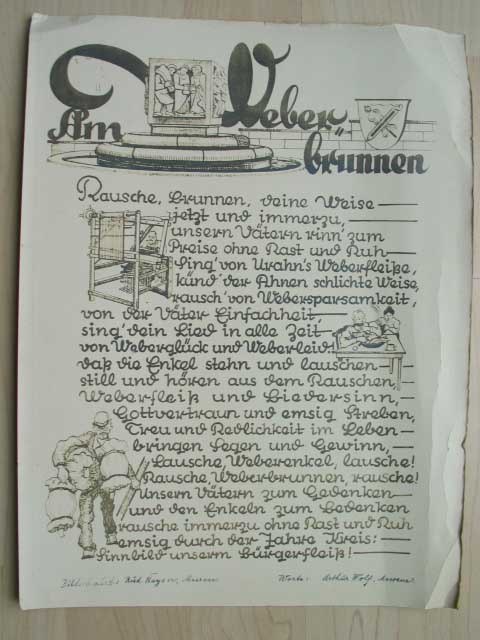 Am Weber-
brunnen
Rausche, Brunnen, deine Weise
jetzt und immerzu,
unsern Vätern rinn' zum
Preise ohne Rast und Ruh
Sing' von Urahn's Weberfleiße,
künd' der Ahnen schlichte Weise,
rausch' von Webersparsamkeit,
von der Väter Einfachheit,
sing' dein Lied in alle Zeit
von Weberglück und Weberleid!
daß die Enkel stehn und lauschen
still und hören aus dem Rauschen,
Weberfleiß und Biedersinn,
Gottvertraun und emsig Streben,
Treu und Redlichkeit im Leben
bringen Segen und Gewinn,
Lausche, Weberenkel, lausche!
Rausche, Weberbrunnen, rausche!
Unsern Vätern zum Gedenken
und den Enkeln zum Bedenken
rausche immerzu ohne Rast und Ruh
emsig durch der Jahre Kreis:
Sinnbild unserm Bürgerfleiß!
Rud. Kayser, Worte: Arthur Wolf,